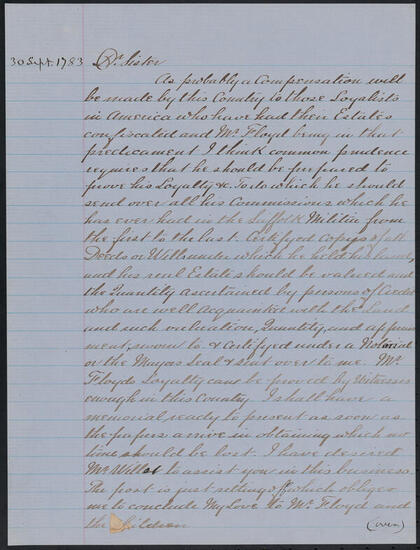 30 Sept. 1783 Dr. Sister
As probably a Compensation will
be made by this Country to those Loyalists
in America who have had their Estates
confiscated and Mr. Floyd being in that
predicament I think common prudence
requires that he should be prepared to
prove his Loyalty & To do which he should
send over all his Commissions which he
has ever had in the Suffolk Militia from
the first to the last. Certifyed Copys of all
Deeds or Wills under which he held his Lands,
and his real Estate should be valued and
the Quantity ascertained by persons of Credit
who are well acquainted with the Land
and such valuation, Quantity, and
ment, sworn to & Certifyed under a Notorial
or the Mayors Seal & sent over to me. Mr.
Floyds Loyalty can be proved by Witnesses
enough in this Country. I shall have a
memorial ready to present as soon as
the papers arrive in obtaining which no
time should be lost. I have desired
Mr. Willet to assist you in this business.
The post is just setting off which obliges
me to conclude My Love to Mr. Floyd and
the Children
(over)